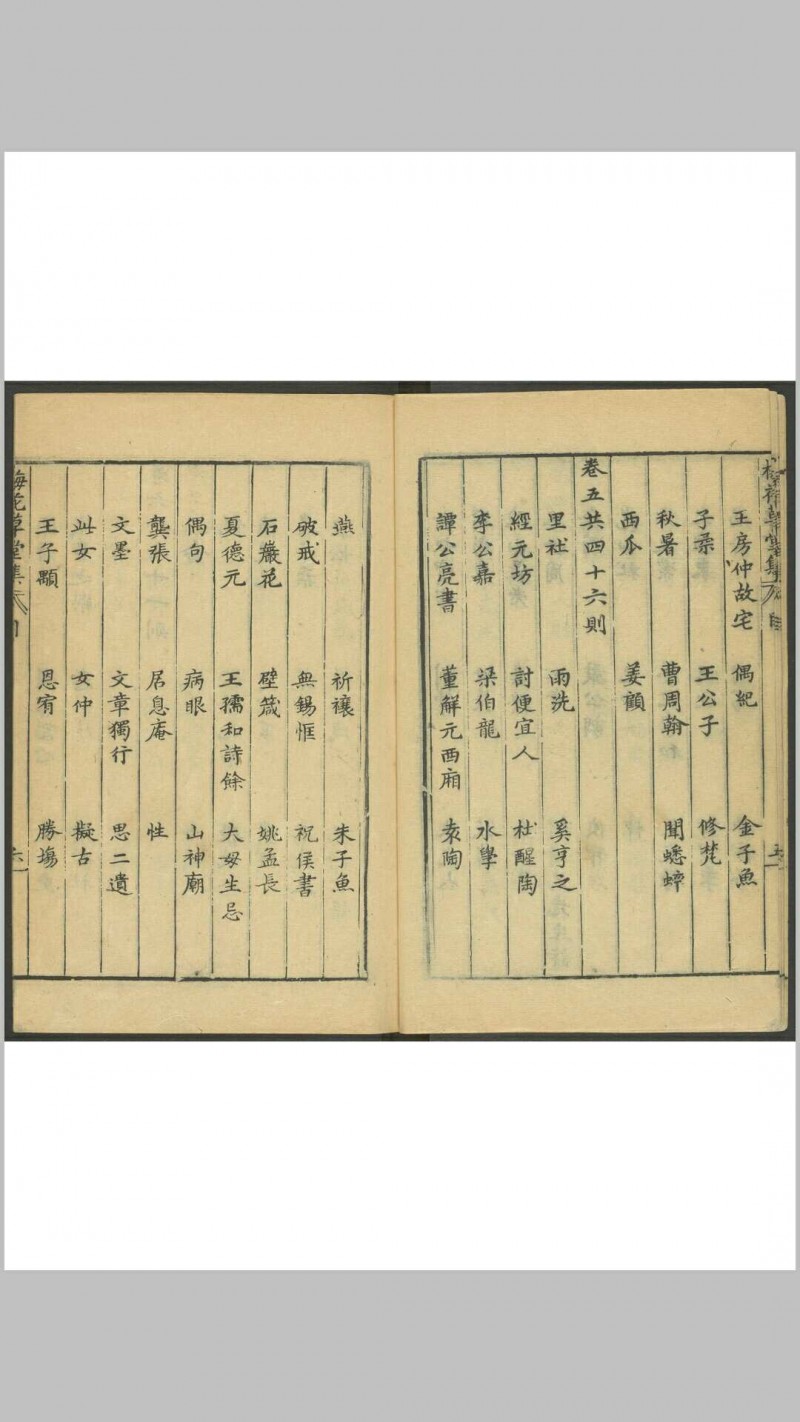 王房仲故宅 偶紀 金子魚
子柔 王公子 修梵
秋暑 曹周翰 聞蟋蟀
西瓜 姜顧
卷五共四十六則
里社 雨洗 奚亨之
經元坊 討便宜人 杜醒陶
李公嘉 梁伯龍 水學
譚公亮書 董解元西廂 袁陶
燕 祈禳 朱子魚
破戒 無錫恇 祝侯書
石巖花 壁箴 姚孟長
夏德元 王孺和詩餘 大母生忌
偶句 病眼 山神廟
龔張 居息庵 性
文墨 文章獨行 思二遺
此女 女仲 擬古
王子顒 恩宥 勝塲
梅花草堂集 目 六